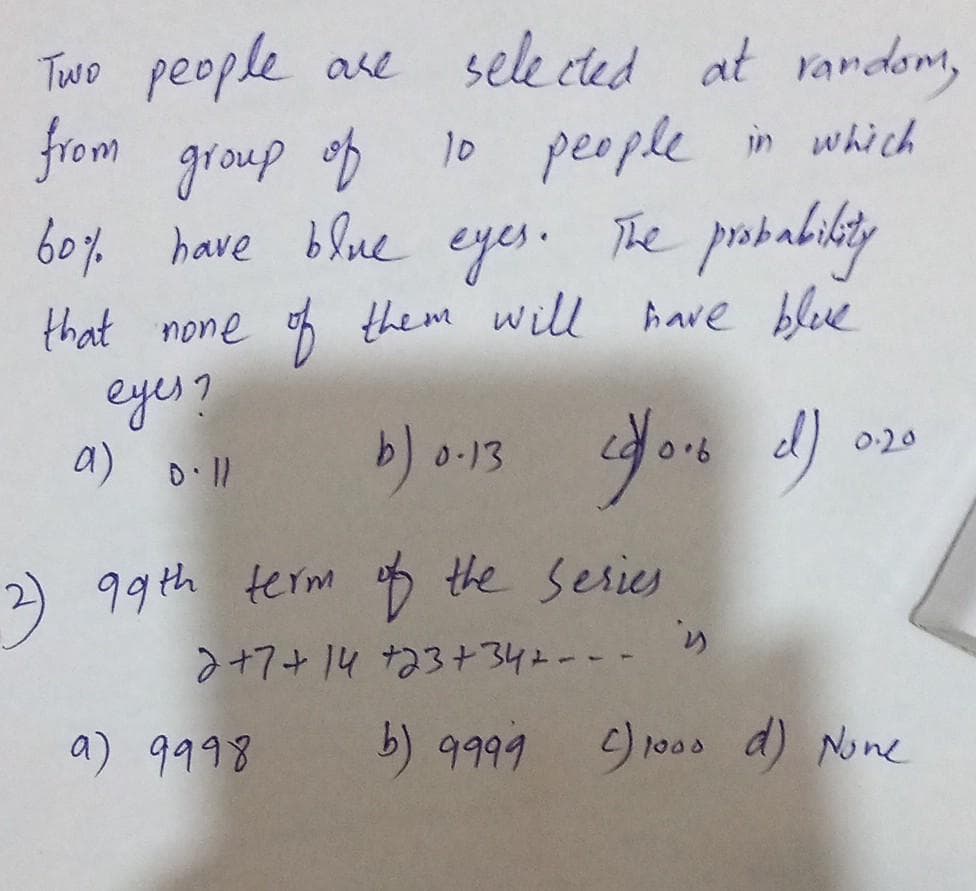 Two people are selected at random,
from group of 10 people in which
60% have blue eyes. The probability
that none of them will have blue
eyes?
a) 0.11 b) 0.13 c) 0.6 d) 0.20
2) 99th term of the series
2+7+14+23+34+---- is
a) 9998 b) 9999 c) 1000 d) None